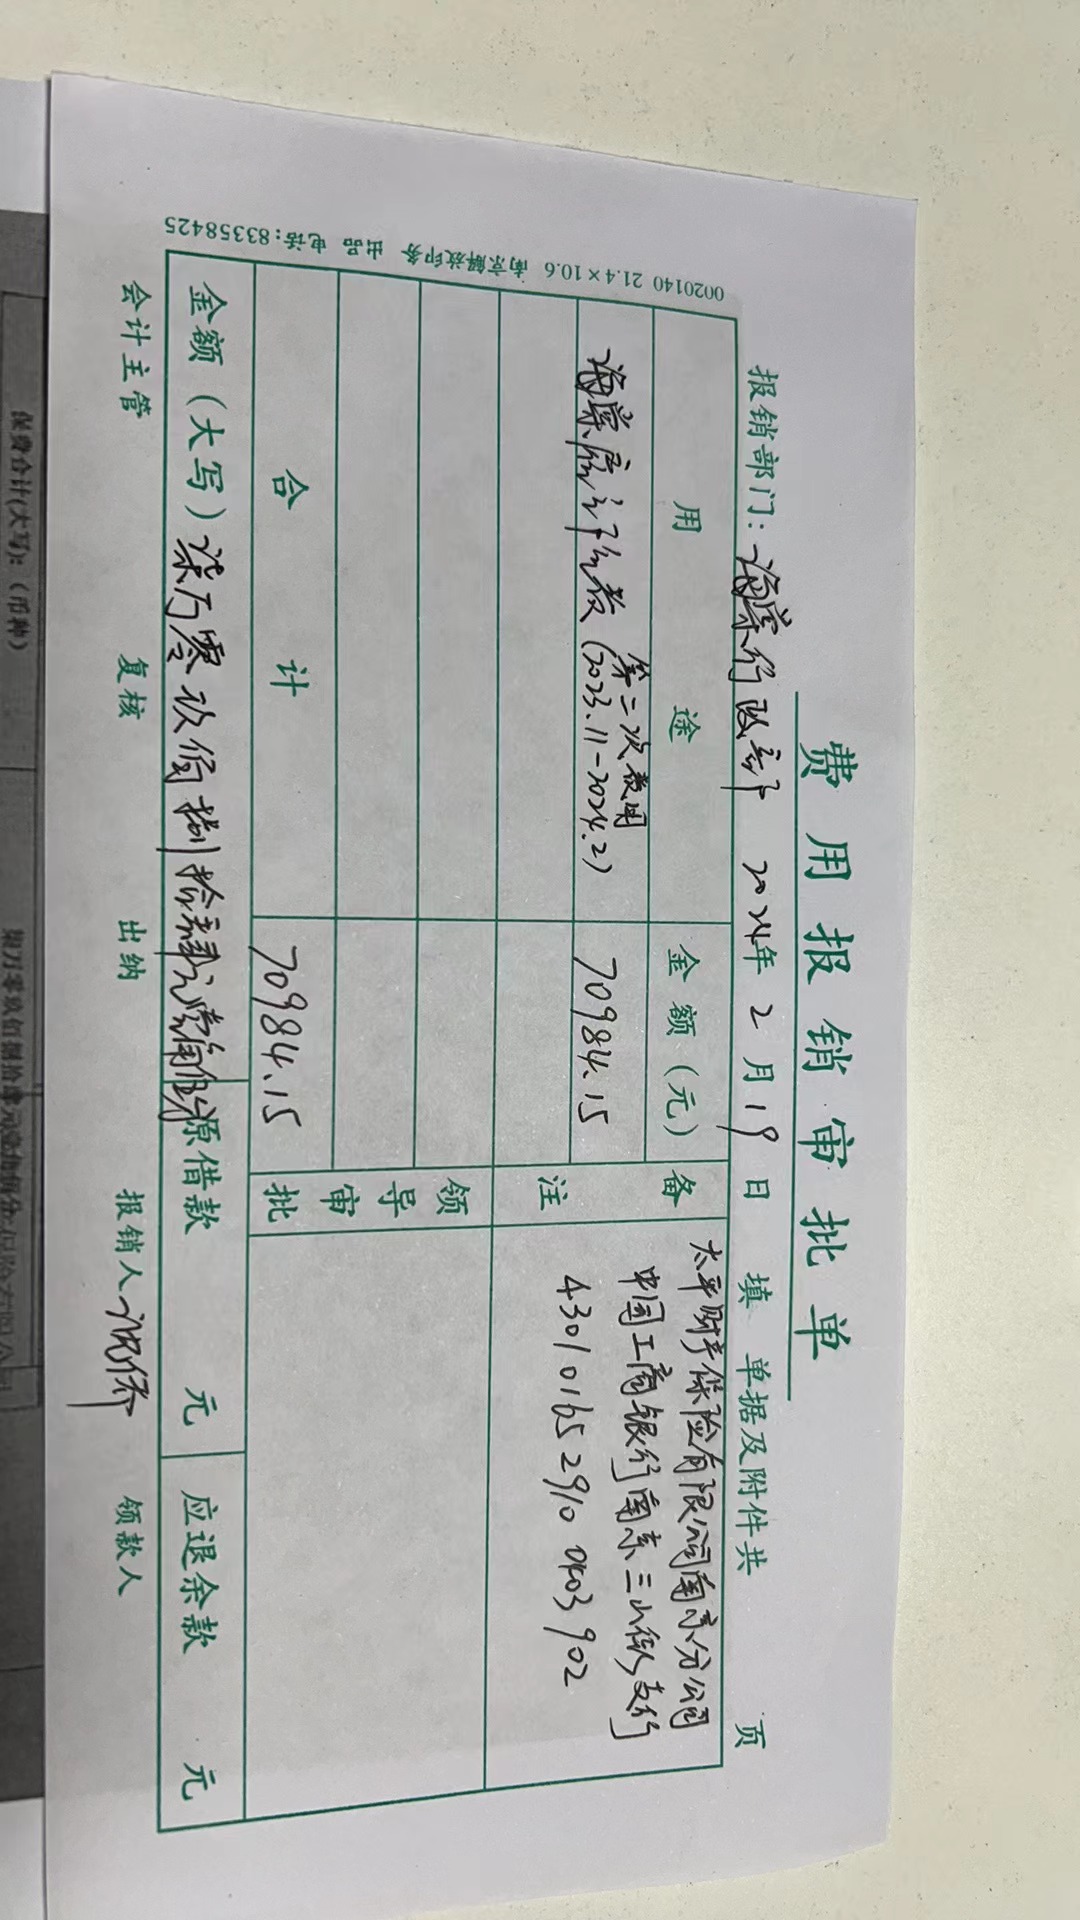 费用报销审批单
报销部门：海棠行政部 2024年2月19日 填 单据及附件共 页
用途 金额（元） 备注
第二次费用
海棠 (2023.11-2024.2) 70984.15
太平财产保险有限公司南京分公司
中国工商银行南京三山街支行
4301 0165 2910 0403 902
领导审批
合计 70984.15
金额（大写）柒万零玖佰捌拾肆元壹角伍分 原借款 元 应退余款 元
会计主管 复核 出纳 报销人 领款人
0020140 21.4×10.6 南京解放印务 出品 电话：83358425
保费合计(大写)：（币种）
柒万零玖佰捌拾肆元壹角伍分